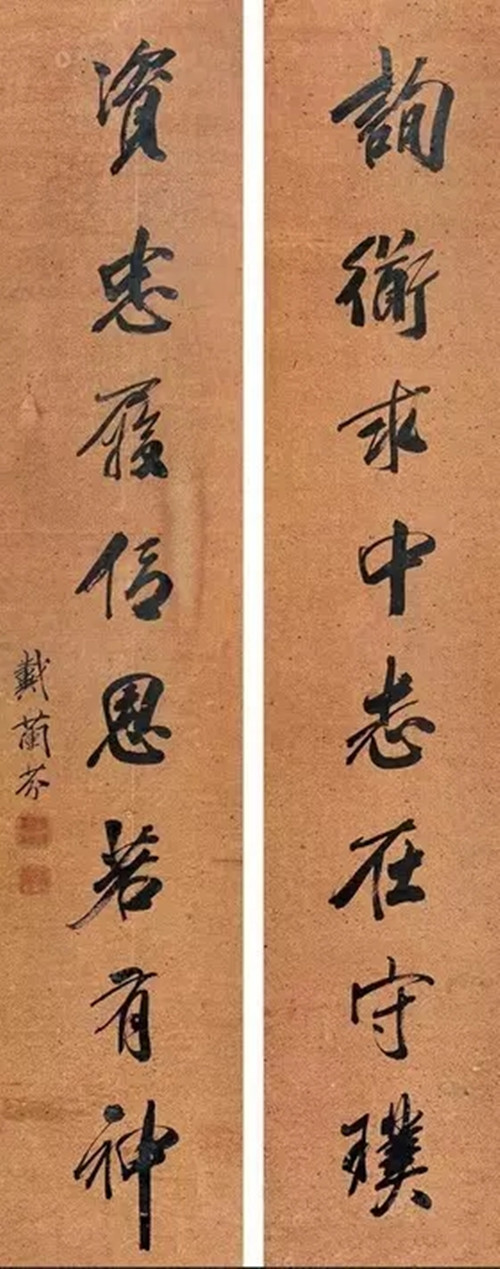 詢衡求中志在守璞
資忠履信恩若有神
戴蘭芬